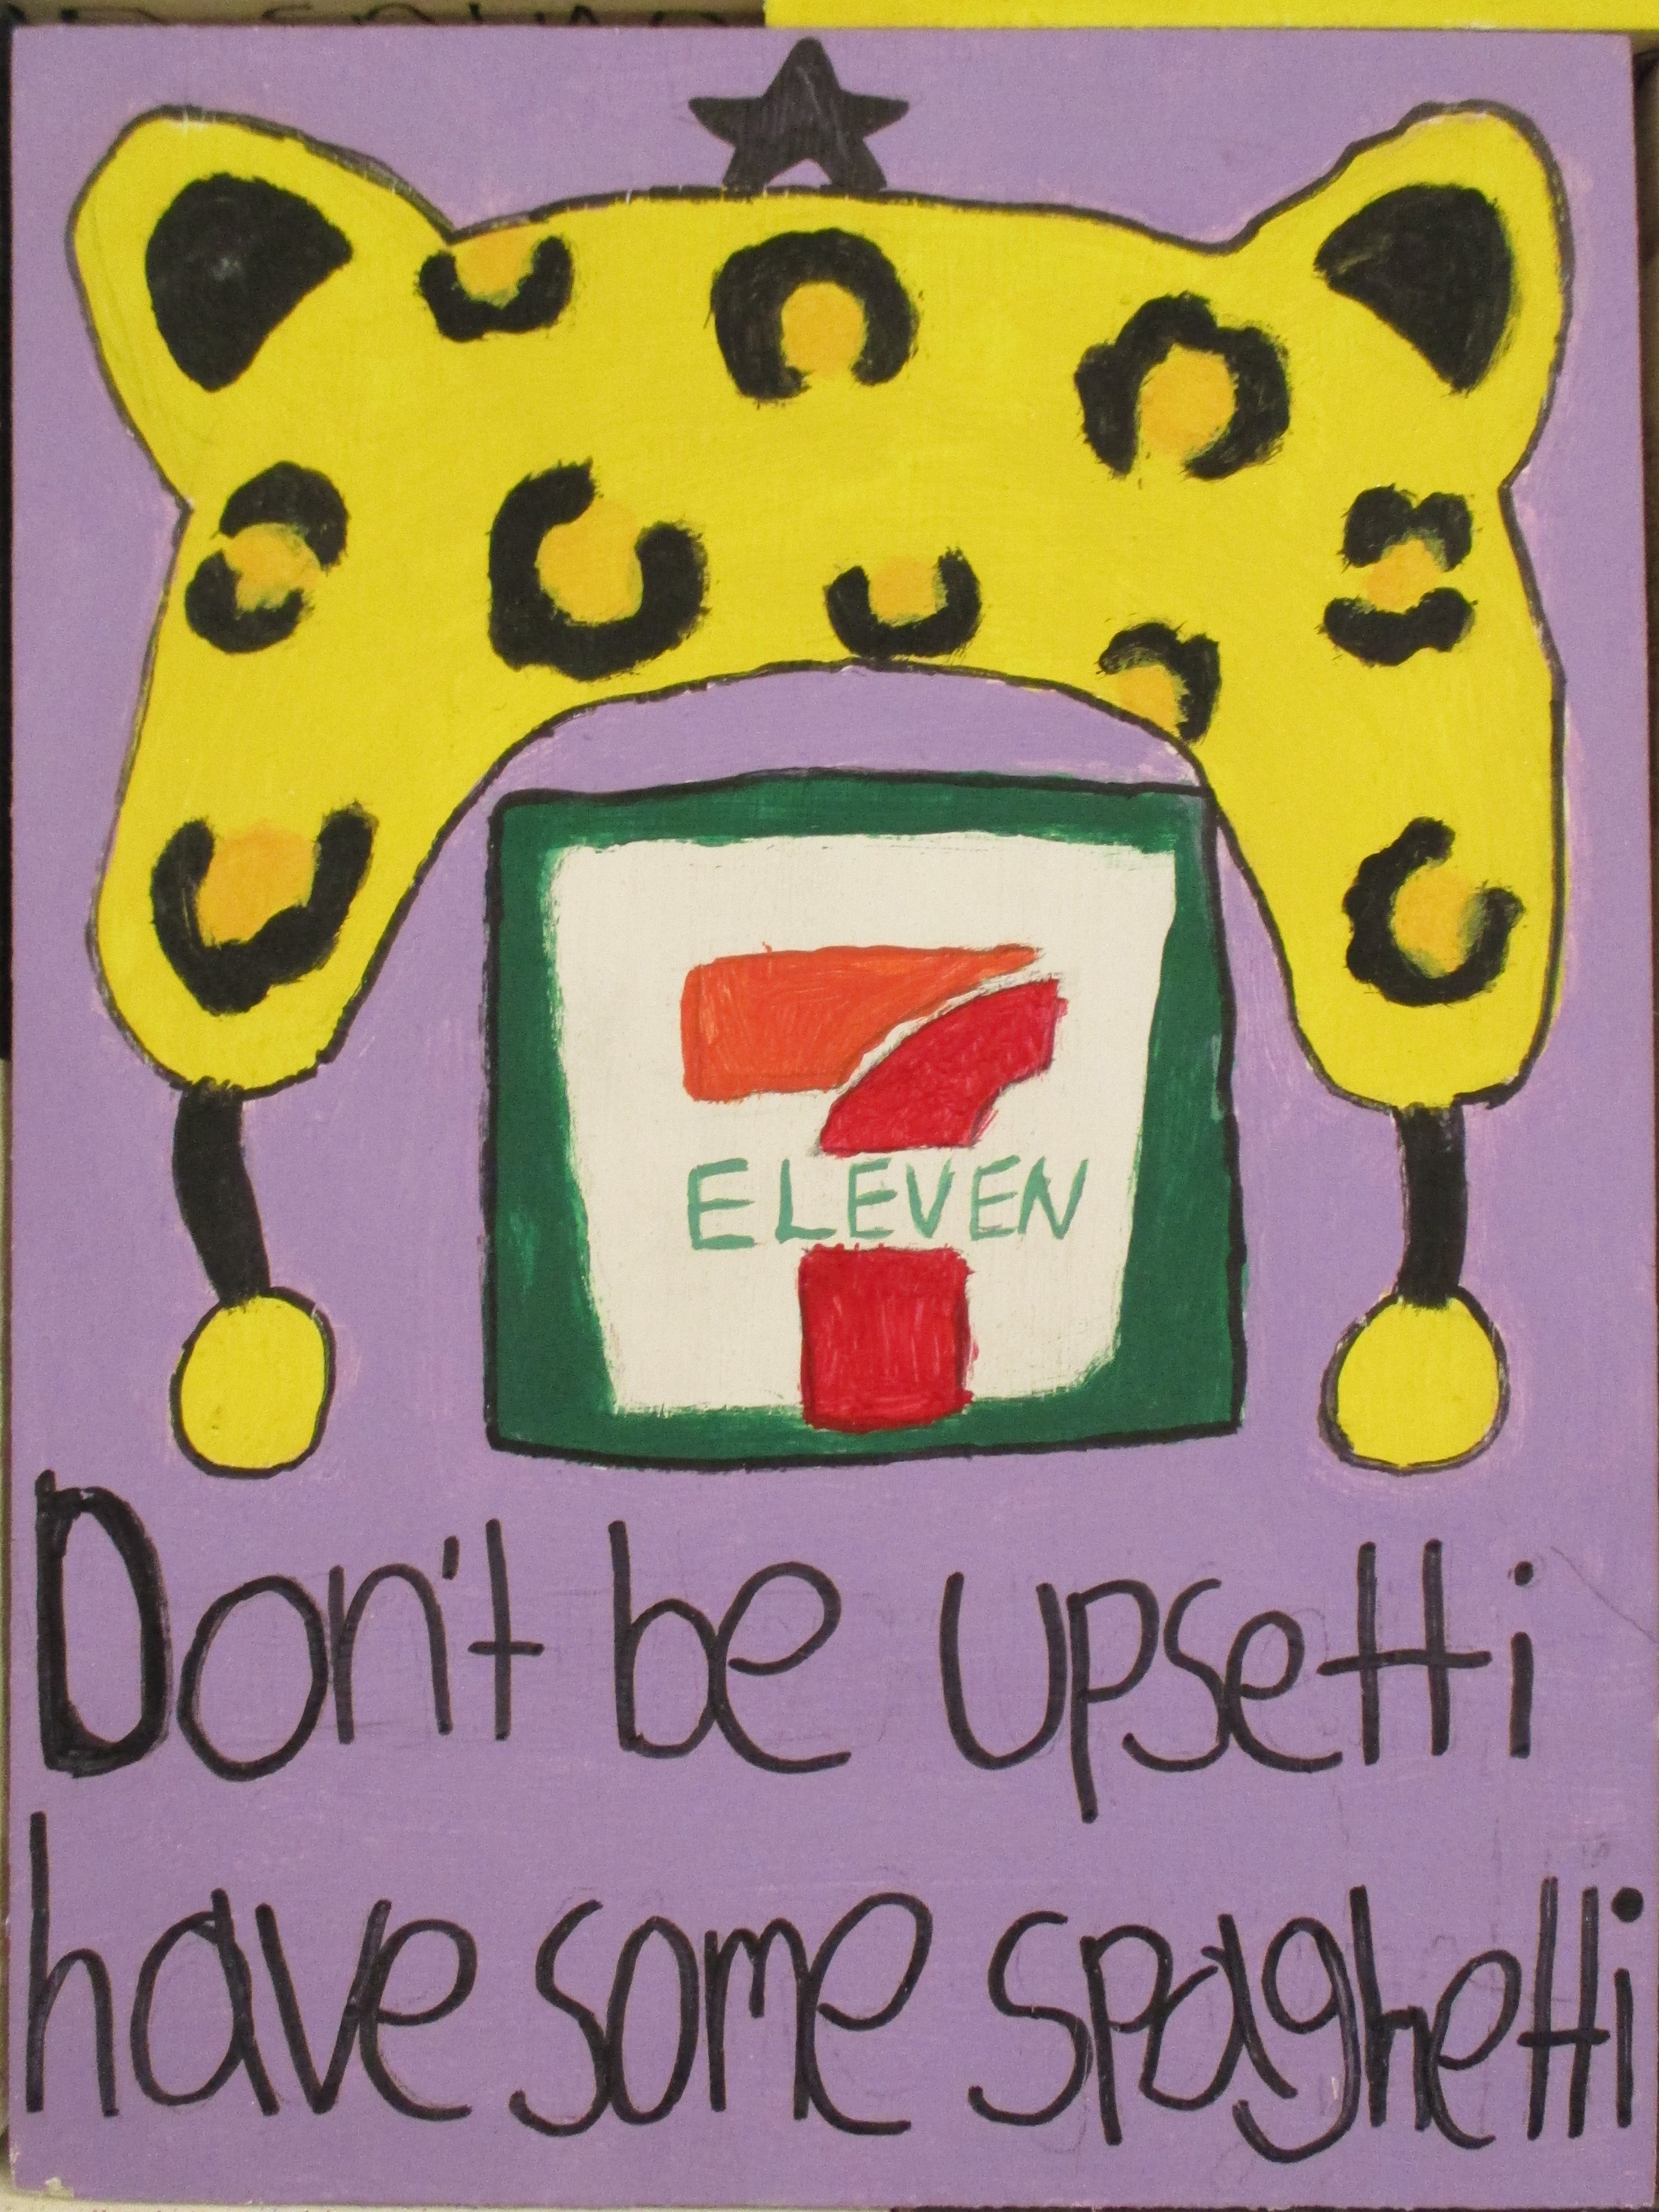 7
ELEVEN
Don't be upsetti
have some spaghetti